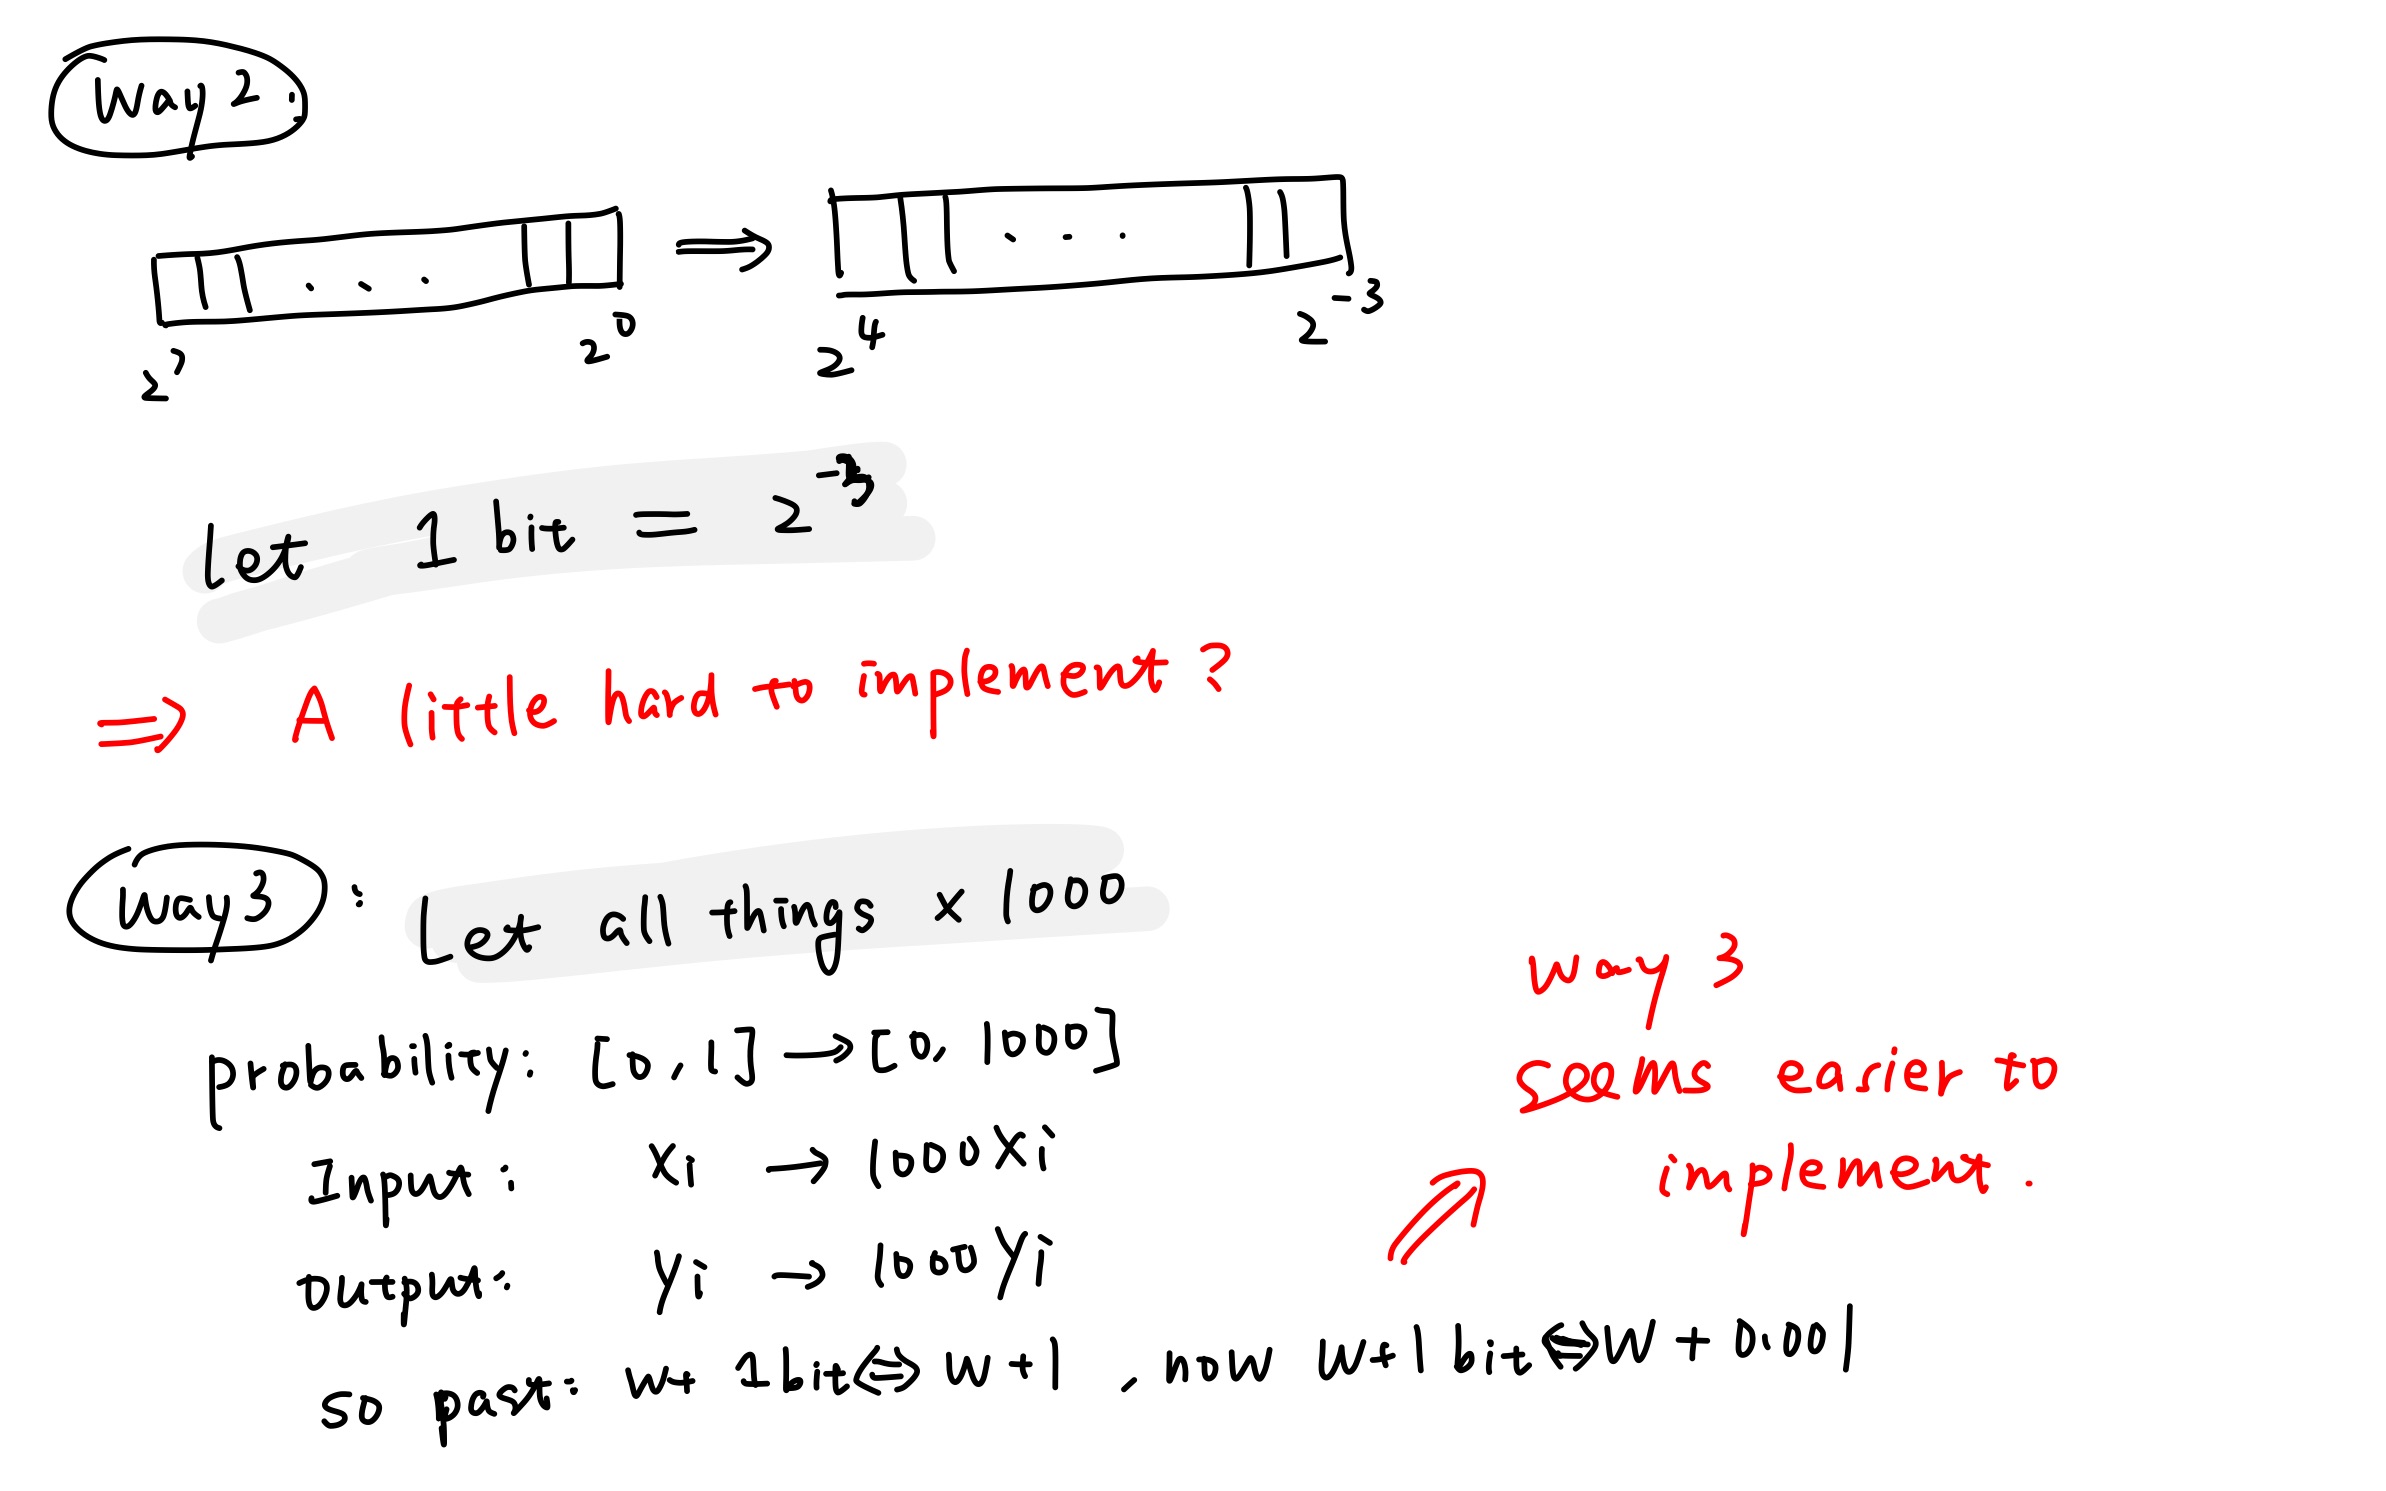 Way 2 :
2^7 2^0 ⇒ 2^4 2^-3
let 1 bit = 2^-3
⇒ A little hard to implement ?
Way 3 : Let all things × 1000
probability: [0, 1] → [0, 1000]
Input : Xi → 1000Xi
output: Yi → 1000Yi
so past: w+ 1bit ⇔ W+1 , now W+1 bit ⇔ W + 0.001
way 3
seems easier to
implement .